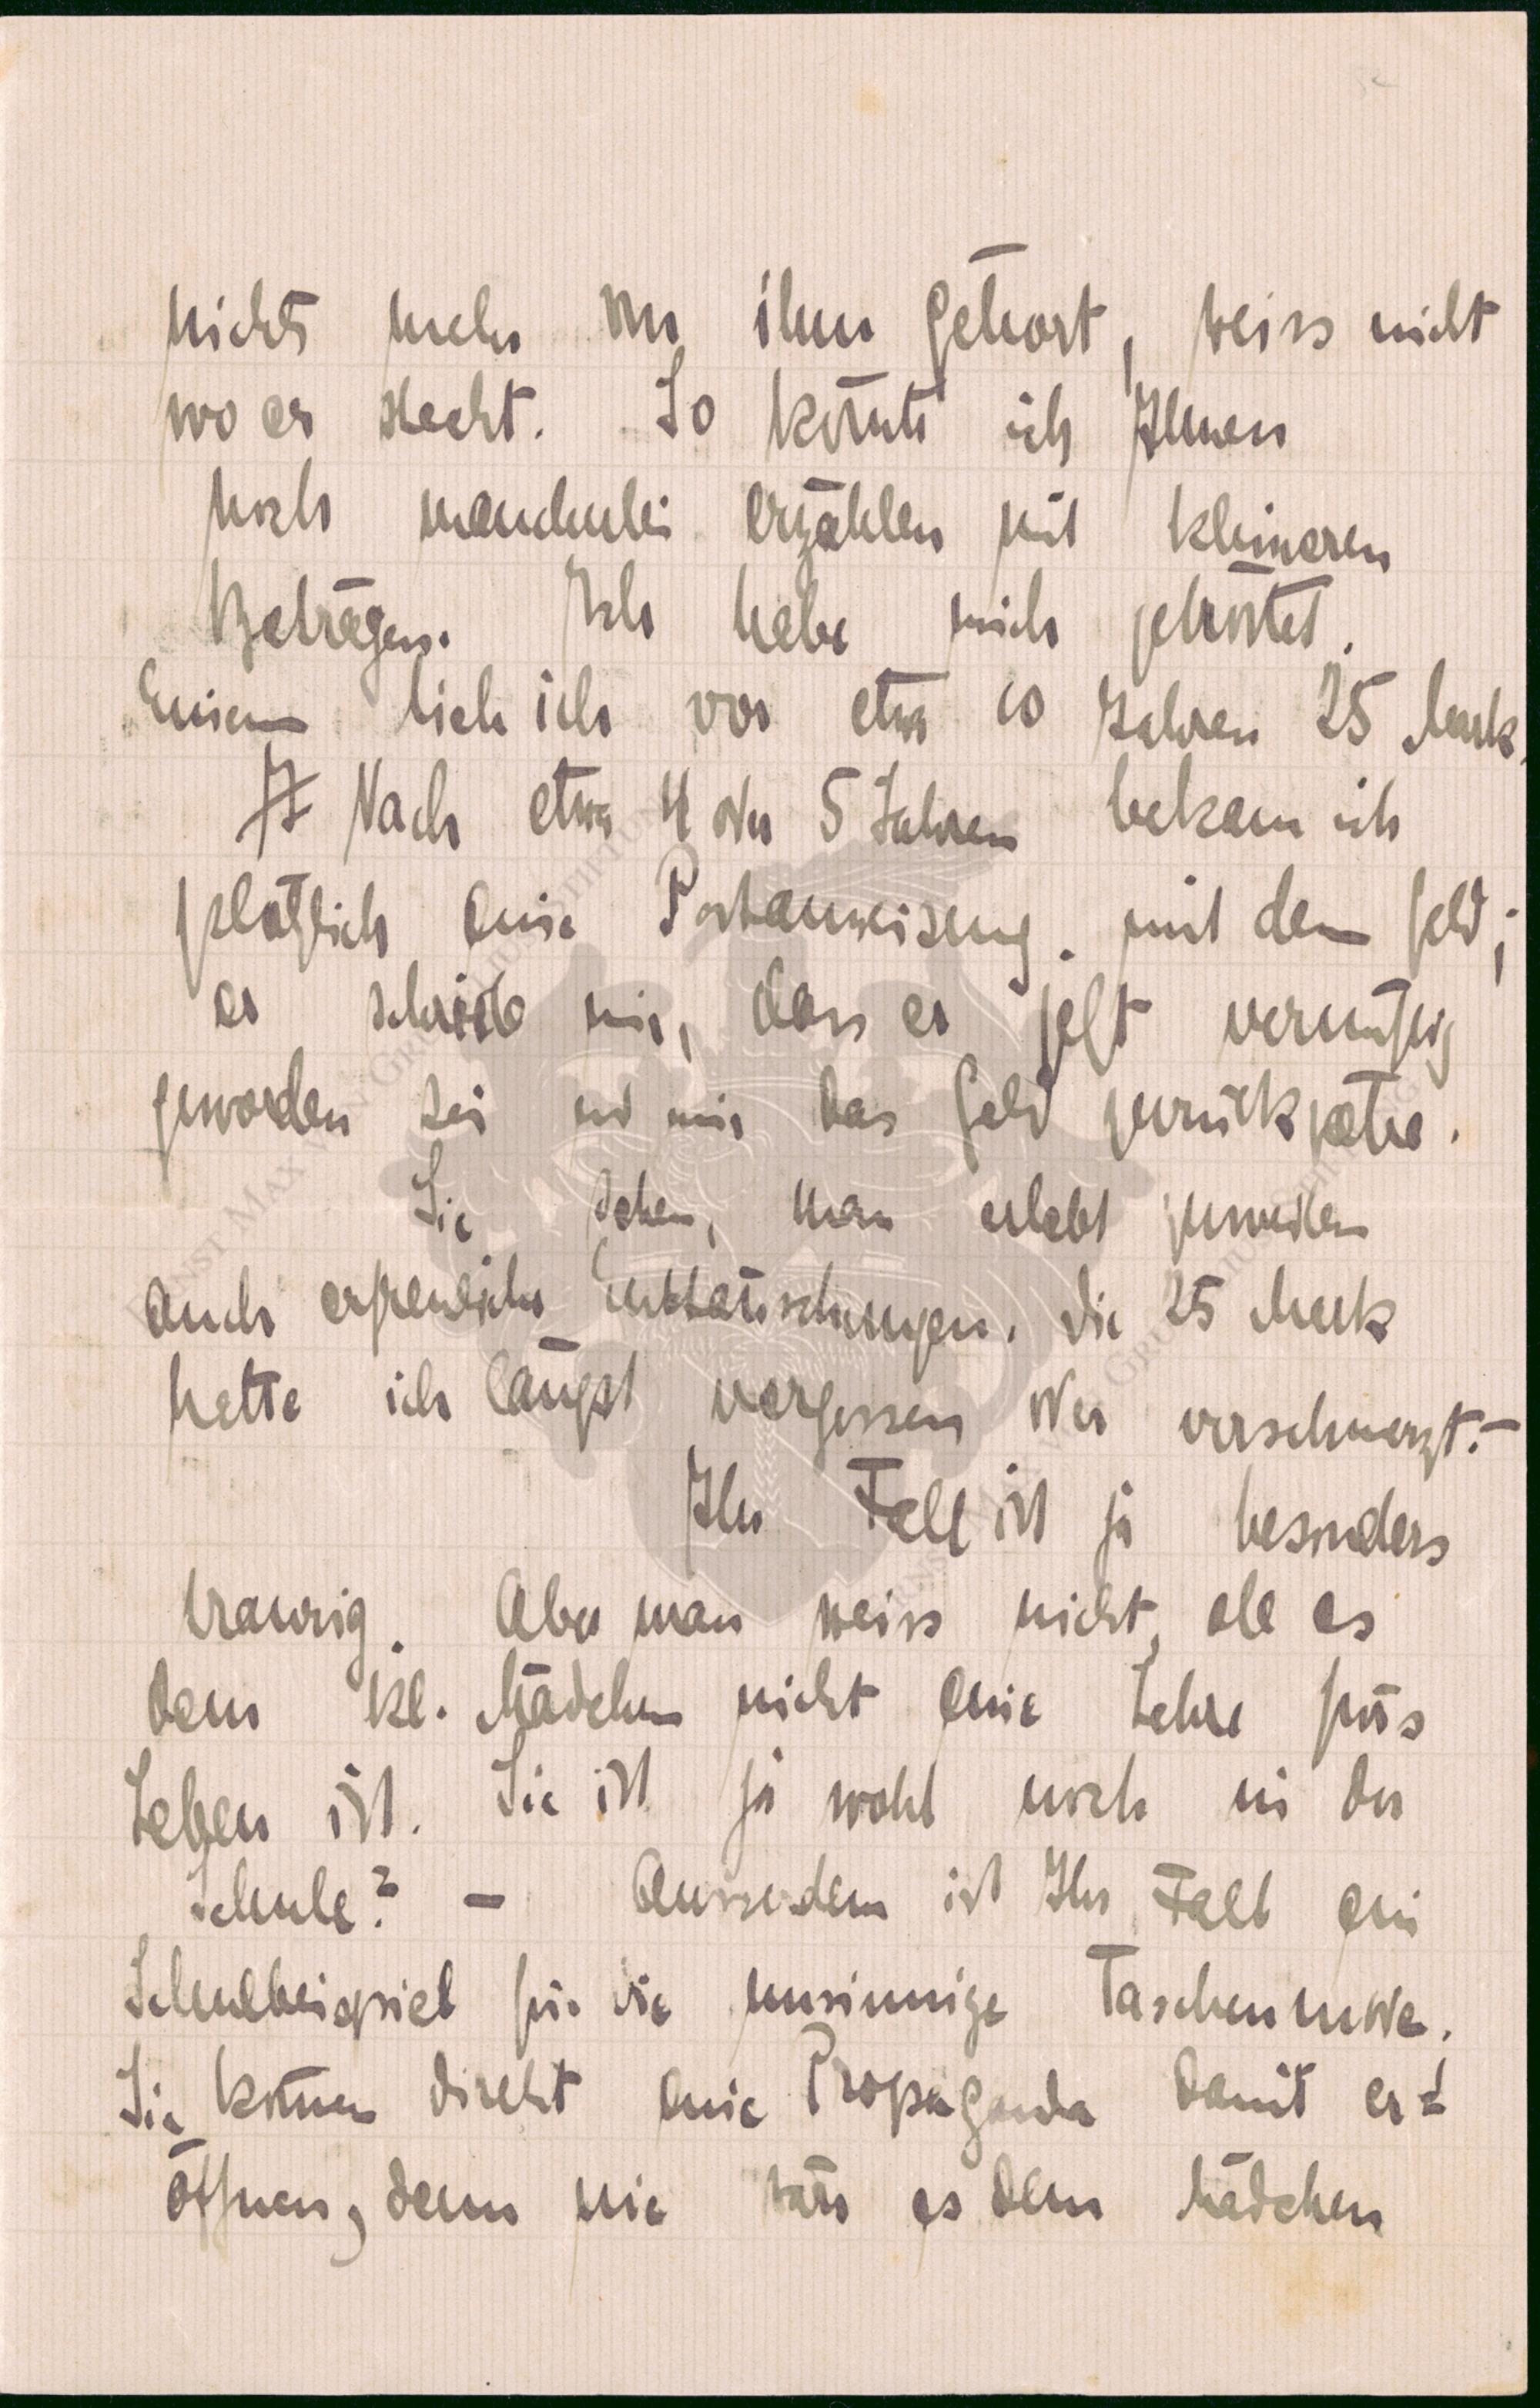 nichts mehr von ihm gehört, weiss nicht
wo er steckt. So könnte ich Ihnen
noch mancherlei erzählen mit kleineren
Beträgen. Ich habe mich getröstet.
Einem lieh ich vor etwa 10 Jahren 25 Mark.
Nach etwa 4 oder 5 Jahren bekam ich
plötzlich eine Postanweisung mit dem Geld;
er schrieb mir, dass er jetzt vernünftig
geworden sei und mir das Geld zurückzahle.
Sie sehen, man erlebt zuweilen
auch erfreuliche Enttäuschungen. Die 25 Mark
hatte ich längst vergessen oder verschmerzt. –
Ihr Fall ist ja besonders
traurig. Aber man weiss nicht, ob es
dem kl. Mädchen nicht eine Lehre fürs
Leben ist. Sie ist ja wohl noch in der
Schule? – Ausserdem ist Ihr Fall ein
Schulbeispiel für die unsinnige Taschenmode.
Sie können direkt eine Propaganda damit er=
öffnen, denn nie wär es dem Mädchen
ERNST MAX VON GRUNELIUS-STIFTUNG